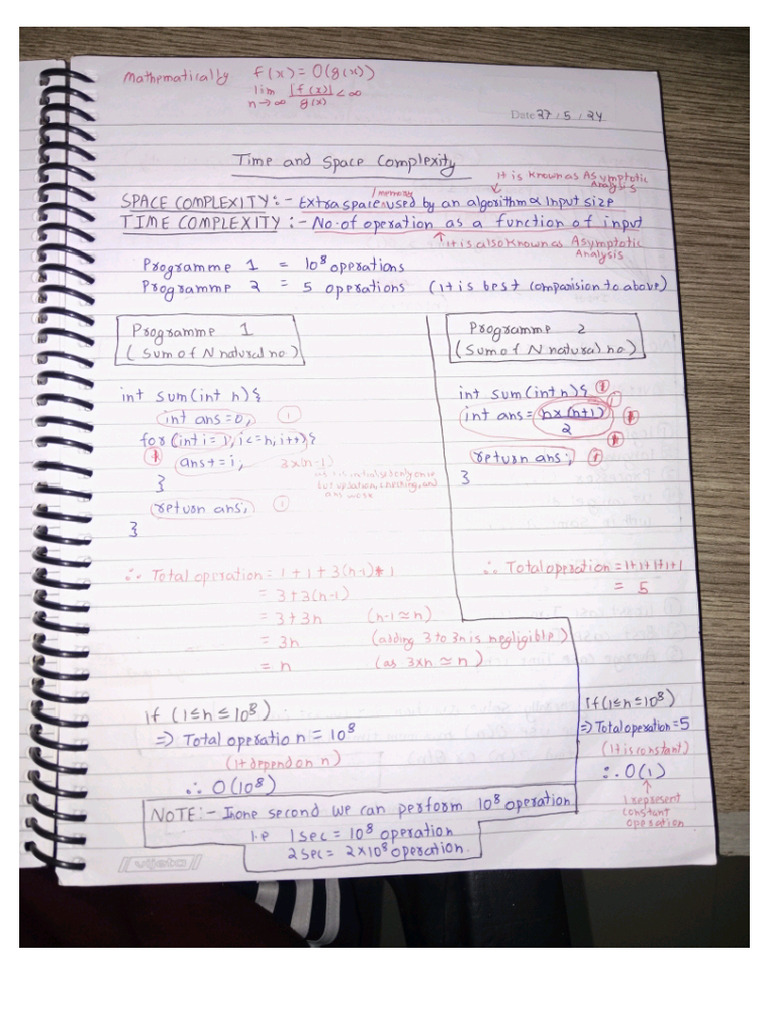 Mathematically f(x) = O(g(x))
lim |f(x)| / g(x) < ∞
n→∞
Date 27 / 5 / 24
Time and Space Complexity
It is known as Asymptotic Analysis
SPACE COMPLEXITY :- Extra space /memory used by an algorithm α Input size
TIME COMPLEXITY :- No. of operation as a function of input
It is also known as Asymptotic Analysis
Programme 1 = 10^8 operations
Programme 2 = 5 operations (It is best comparision to above)
Programme 1
(Sum of N natural no)
int sum(int n){
int ans=0; 1
for(int i=1; i<=n; i++){
ans+=i; 3×(n-1)
but updation, checking, and
}
return ans; 1
}
∴ Total operation = 1+1+3(n-1)+1
= 3+3(n-1)
= 3+3n (n-1≃n)
= 3n (adding 3 to 3n is negligible)
= n (as 3×n≃n)
If (1≤n≤10^8)
⇒ Total operation = 10^8
(It depend on n)
∴ O(10^8)
Programme 2
(Sum of N natural no)
int sum(int n){ 1
int ans= n×(n+1) / 2
return ans; 1
}
∴ Total operation = 1+1+1+1+1
= 5
If (1≤n≤10^8)
⇒ Total operation = 5
(It is constant)
∴ O(1)
1 represent
constant
operation
NOTE:- In one second we can perform 10^8 operation
i.e 1 sec = 10^8 operation
2 sec = 2×10^8 operation.
vijeta